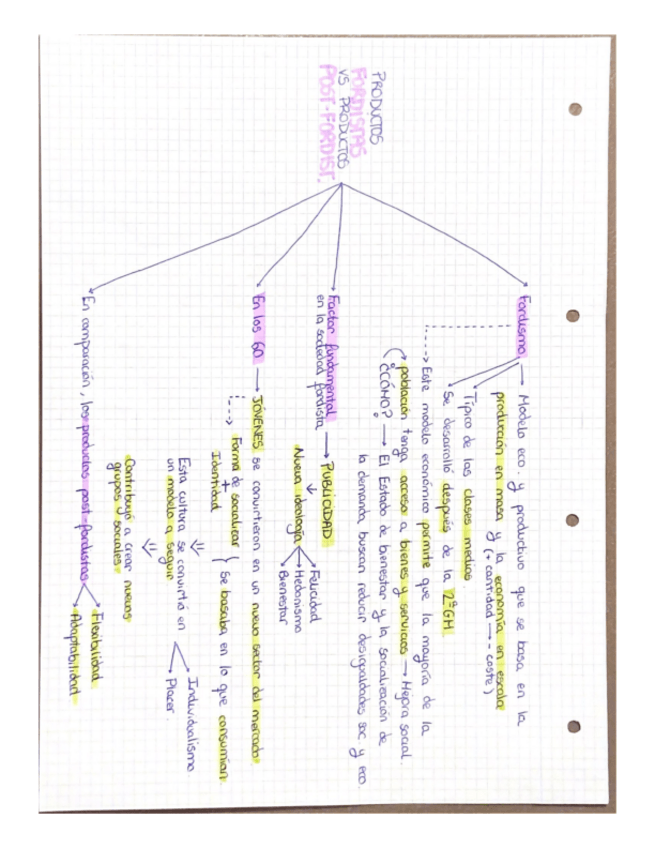 PRODUCTOS
FORDISTAS
VS PRODUCTOS
POST-FORDIST.
Fordismo → Modelo eco. y productivo que se basa en la
producción en masa y la economía en escala
(+ cantidad → - coste)
Típico de las clases medias
Se desarrolló después de la 2ºGM
Este modelo económico permite que la mayoría de la
población tenga acceso a bienes y servicios → Mejora social.
¿CÓMO? → El Estado de bienestar y la socialización de
la demanda buscan reducir desigualdades soc y eco.
Factor fundamental → PUBLICIDAD
en la sociedad fordista
Nueva ideología
Felicidad
Hedonismo
Bienestar
En los 60 → JÓVENES se convirtieron en un nuevo sector del mercado
Forma de socializar
+
Identidad
{ Se basaba en lo que consumían
Esta cultura se convirtió en
un modelo a seguir
Individualismo
Placer
Contribuyó a crear nuevos
grupos sociales
En comparación, los productos post-fordistas
Flexibilidad
Adaptabilidad